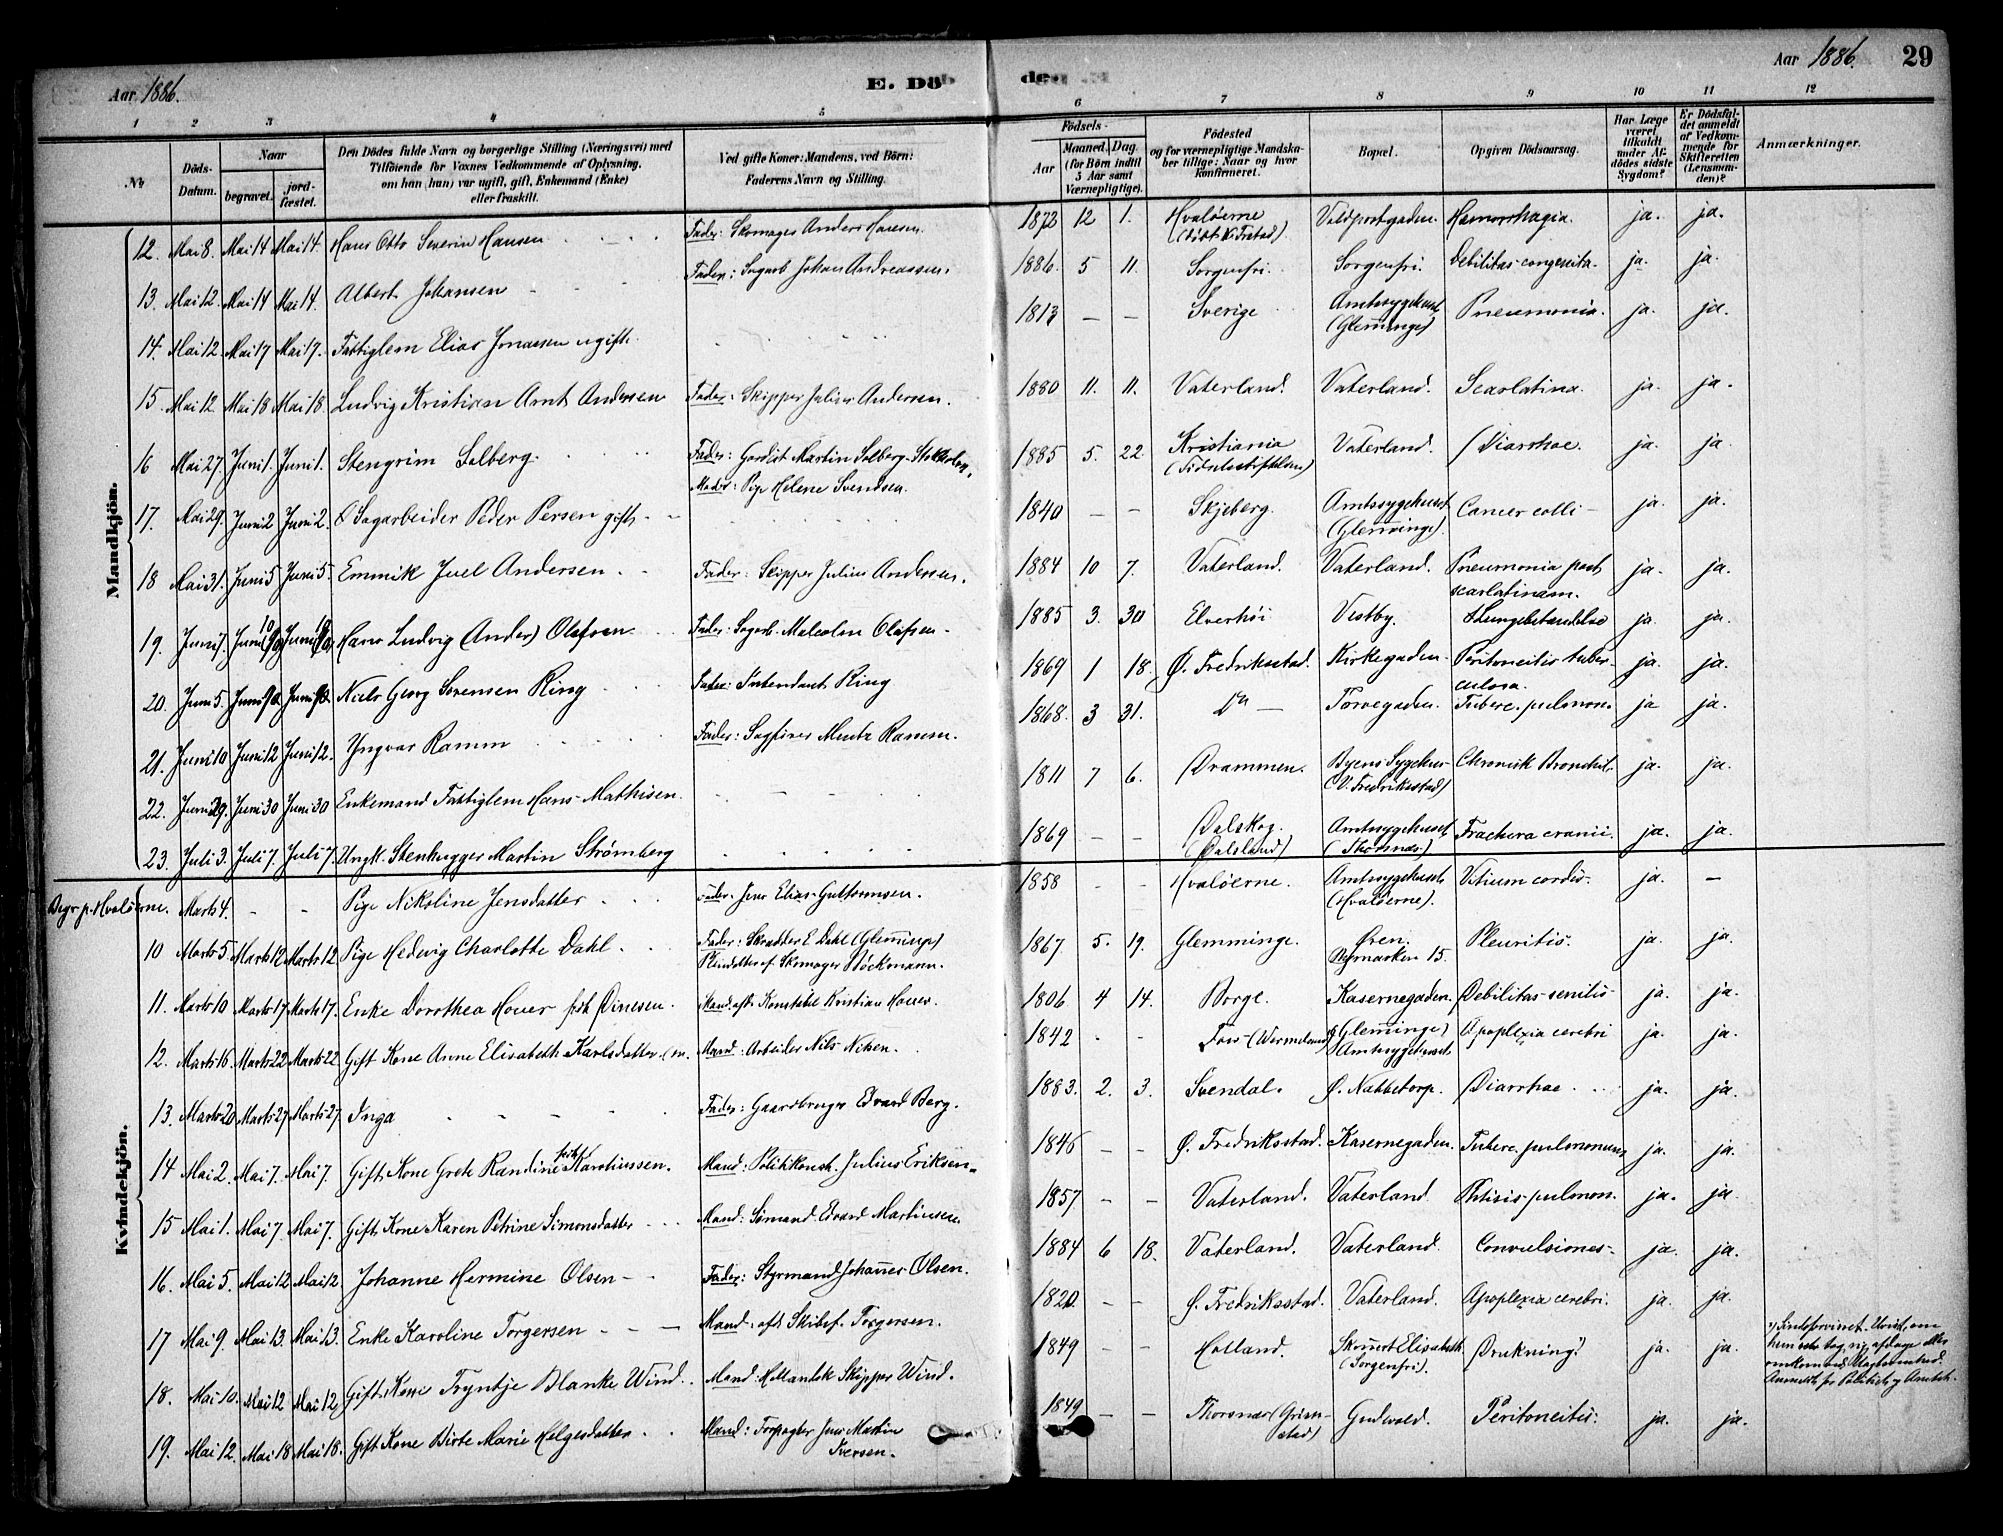 Aar 1886.
E. Dö
Aar 1886.
29
1 2 3 4 5 6 7 8 9 10 11 12
No
Döds-Datum.
Naar
begravet.
jord-fæstet.
Den Dödes fulde Navn og borgerlige Stilling (Næringsvei) med
Tilföiende for Voxnes Vedkommende af Oplysning,
om han (hun) var ugift, gift, Enkemand (Enke)
eller fraskilt.
Ved gifte Koner: Mandens, ved Börn:
Faderens Navn og Stilling.
Födsels-
Aar
Maaned. Dag.
(for Börn indtil
5 Aar samt
Værnepligtige).
Födested
og for værnepligtige Mandska-
ber tillige: Naar og hvor
konfirmeret.
Bopæl.
Opgiven Dödsaarsag.
Har Læge
været
tilkaldt
under Af-
dödes sidste
Sygdom?
Er Dödsfal-
det anmeldt
af Vedkom-
mende for
Skifteretten
(Lensman-
den)?
Anmærkninger.
Mandkjön.
12. Mai 8. Mai 14 Mai 14. Hans Otto Severin Hansen Fader: Skomager Anders Hansen. 1872 12 1. Hvalöerne Voldportgaden. Hæmorrhagia. ja. ja.
13. Mai 12. Mai 14 Mai 14. Albert Johansen Fader: Sagarb. Johan Andreassen. 1886. 5 11. Sorgenfri. Sorgenfri. Debilitas congenita. ja. ja.
14. Mai 12. Mai 17 Mai 17. Fattiglem Elias Jonassen ugift. 1813 — — Sverige Amtssygehuset (Glemminge) Pneumonia. ja. ja.
15. Mai 12. Mai 18 Mai 18. Ludvig Kristian Arnt Andersen Fader: Skipper Julius Andersen. 1880 11. 11. Vaterland. Vaterland. Scarlatina. ja. ja.
16 Mai 27. Juni 1. Juni 1. Stengrim Solberg. Fader: Gardist Martin Solberg. Stokholm,
Moder: Pige Helene Svendsen. 1885 5. 22. Kristiania (Födselsstiftelsen) Vaterland. Diarrhoe. ja. ja
17. Mai 29. Juni 2 Juni 2. Sagarbeider Peder Persen gift. 1840 — — Skjeberg. Amtssygehuset (Glemminge). Cancer colli — ja. ja.
18 Mai 31. Juni 5 Juni 5. Emmik Juel Andersen. Fader: Skipper Julius Andersen. 1884 10 7. Vaterland. Vaterland. Pneumonia post scarlatinam. ja. ja.
19. Juni 7. Juni 10 Juni 10 Hans Ludvig (Ander) Olafsen Fader: Sagarb. Malcolm Olafsen. 1885 3. 30 Elverhöi Vestby. Lungebetændelse ja. ja.
20. Juni 5. Niels Georg Sörensen Ring Fader: Intendant Ring 1869 1 18. Ø. Fredriksstad. Kirkegaden. Peritoneitis tuber-
culosa. ja. ja.
21. Juni 10 Juni 12 Juni 12. Yngvar Ramm Fader: Sagfører Mentz Ramm. 1868. 3 31. Do — Torvegaden. Tuberc. pulmon. ja ja.
22. Juni 29. Juni 30 Juni 30 Enkemand Fattiglem Hans Mathisen. 1811 7 6. Drammen. Byens Sygehus (V. Fredriksstad) Chronisk Bronchit. ja. ja.
23. Juli 3. Juli 7. Juli 7. Ungk. Stenhugger Martin Strömberg 1869 — — Dalskog. (Dalsland) Amtssygehuset (Thorsnæs) Fractura cranii. ja. ja.
Kvindekjön.
Begr. p. Hvalöerne. Marts 4. - - Pige Nikoline Jensdatter Fader: Jens Elias Guttormsen. 1858 - - Hvalöerne. Amtssygehuset (Hvalöerne). Vitium cordis. ja. —
10 Marts 5. Marts 12 Marts 12. Pige Hedvig Charlotte Dahl. Fader: Skrædder E. Dahl (Glemminge)
Pleiedatter af Skomager Böckmann. 1867 5. 19. Glemminge. Øren. 15. Pleuritis. ja. ja.
11. Marts 10 Marts 17 Marts 17. Enke Dorothea Hover født Dinesen. Mand: afd. Konstabel Kristian Hover. 1806 4 14. Borge. Kasernegaden. Debilitas senilis ja. ja.
12. Marts 16. Marts 22 Marts 22 Gift Kone Anne Elisabeth Karlsdatter Mand: Arbeider Nils Nilsen. 1842 - - (Wermeland) (Glemminge) Amtssygehuset Apoplexia cerebri ja. ja.
13. Marts 20 Marts 27 Marts 27. Inga Fader: Gaardbruger Edvard Berg. 1883. 2. 3. Svendal. Ø. Nabbetorp. Diarrhoe. ja. ja.
14 Mai 2. Mai 7. Mai 7. Gift Kone Grete Randine født Karoliussen. Mand: Politikonst. Julius Eriksen 1846 — — Ø. Fredriksstad. Kasernegaden. Tuberc. pulmonum ja. ja.
15 Mai 1. Mai 7 Mai 7. Gift Kone Karen Petrine Simonsdatter Mand: Sømand Edvard Martinsen 1857 — — Vaterland. Vaterland Phtisis pulmon. ja. ja.
16. Mai 5. Mai 12 Mai 12. Johanne Hermine Olsen Fader: Styrmand Johannes Olsen. 1884 6 18. Vaterland. Vaterland. Convulsiones. ja. ja.
17 Mai 9. Mai 13. Mai 13. Enke Karoline Torgersen Mand: afd. Skibsf. Torgersen. 1820. — — Ø. Fredriksstad. Vaterland. Apoplexia cerebri. ja. ja.
18. Mai 10. Mai 12 Mai 12 Gift Kone Tryntje Blanke Wind. Mand: Hollandsk Skipper Wind. 1849 — — Holland. Elisabeth (Sorgenfri). Drukning. ja. ja.
19. Mai 12. Mai 18 Mai 18. Gift Kone Birte Marie Helgesdatter. Mand: Forpagter Jens Martin
Iversen. 1849 — — Thorsnæs (Grim-
stad) Gudevold. Peritoneitis. ja. ja.